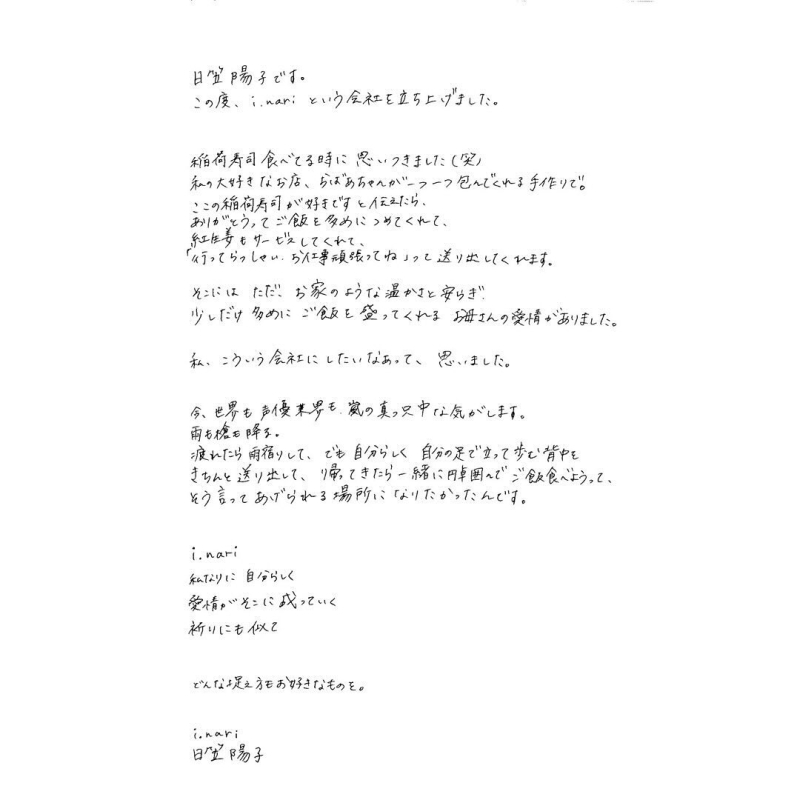 日笠陽子です。
この度、i.nari という会社を立ち上げました。
稲荷寿司食べてる時に思いつきました(笑)
私の大好きなお店、おばあちゃんが一つ一つ包んでくれる手作りで。
ここの稲荷寿司が好きですと伝えたら、
ありがとうってご飯を多めにつめてくれて、
紅生姜もサービスしてくれて、
「行ってらっしゃい、お仕事頑張ってね」って送り出してくれます。
そこにはただ、お家のような温かさと安らぎ、
少しだけ多めにご飯を盛ってくれるお母さんの愛情がありました。
私、こういう会社にしたいなあって、思いました。
今、世界も声優業界も、嵐の真っ只中な気がします。
雨も槍も降る。
疲れたら雨宿りして、でも自分らしく自分の足で立って歩む背中を
きちんと送り出して、帰ってきたら一緒に円卓囲んでご飯食べようって、
そう言ってあげられる場所になりたかったんです。
i.nari
私なりに自分らしく
愛情がそこに成っていく
祈りにも似て
どんな捉え方もお好きなものを。
i.nari
日笠陽子